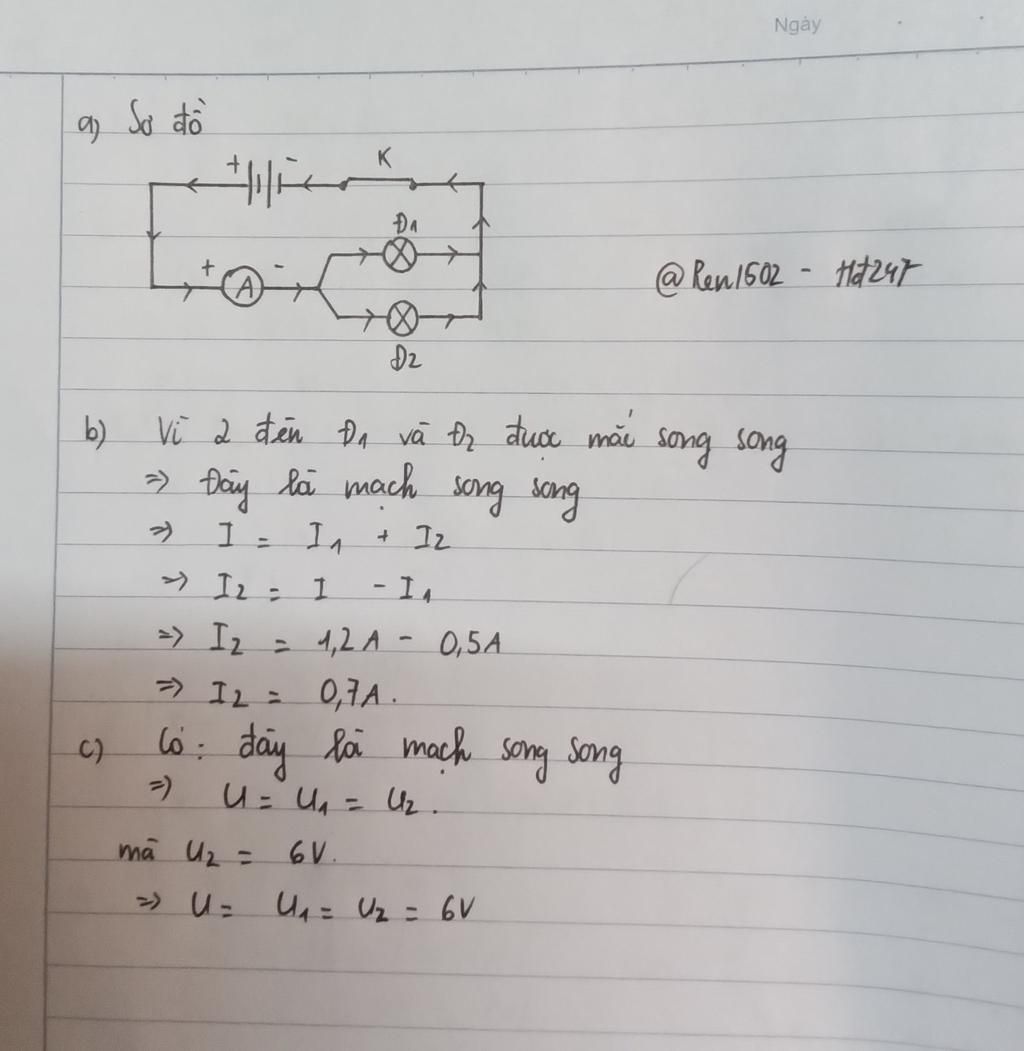 Ngày
a) Sơ đồ
+ - K
Đ1
+ A -
@Ren1602 - Hd247
Đ2
b) Vì 2 đèn Đ1 và Đ2 được mắc song song
=> Đây là mạch song song
=> I = I1 + I2
=> I2 = I - I1
=> I2 = 1,2A - 0,5A
=> I2 = 0,7A.
c) Có: đây là mạch song song
=> U = U1 = U2.
mà U2 = 6V.
=> U = U1 = U2 = 6V